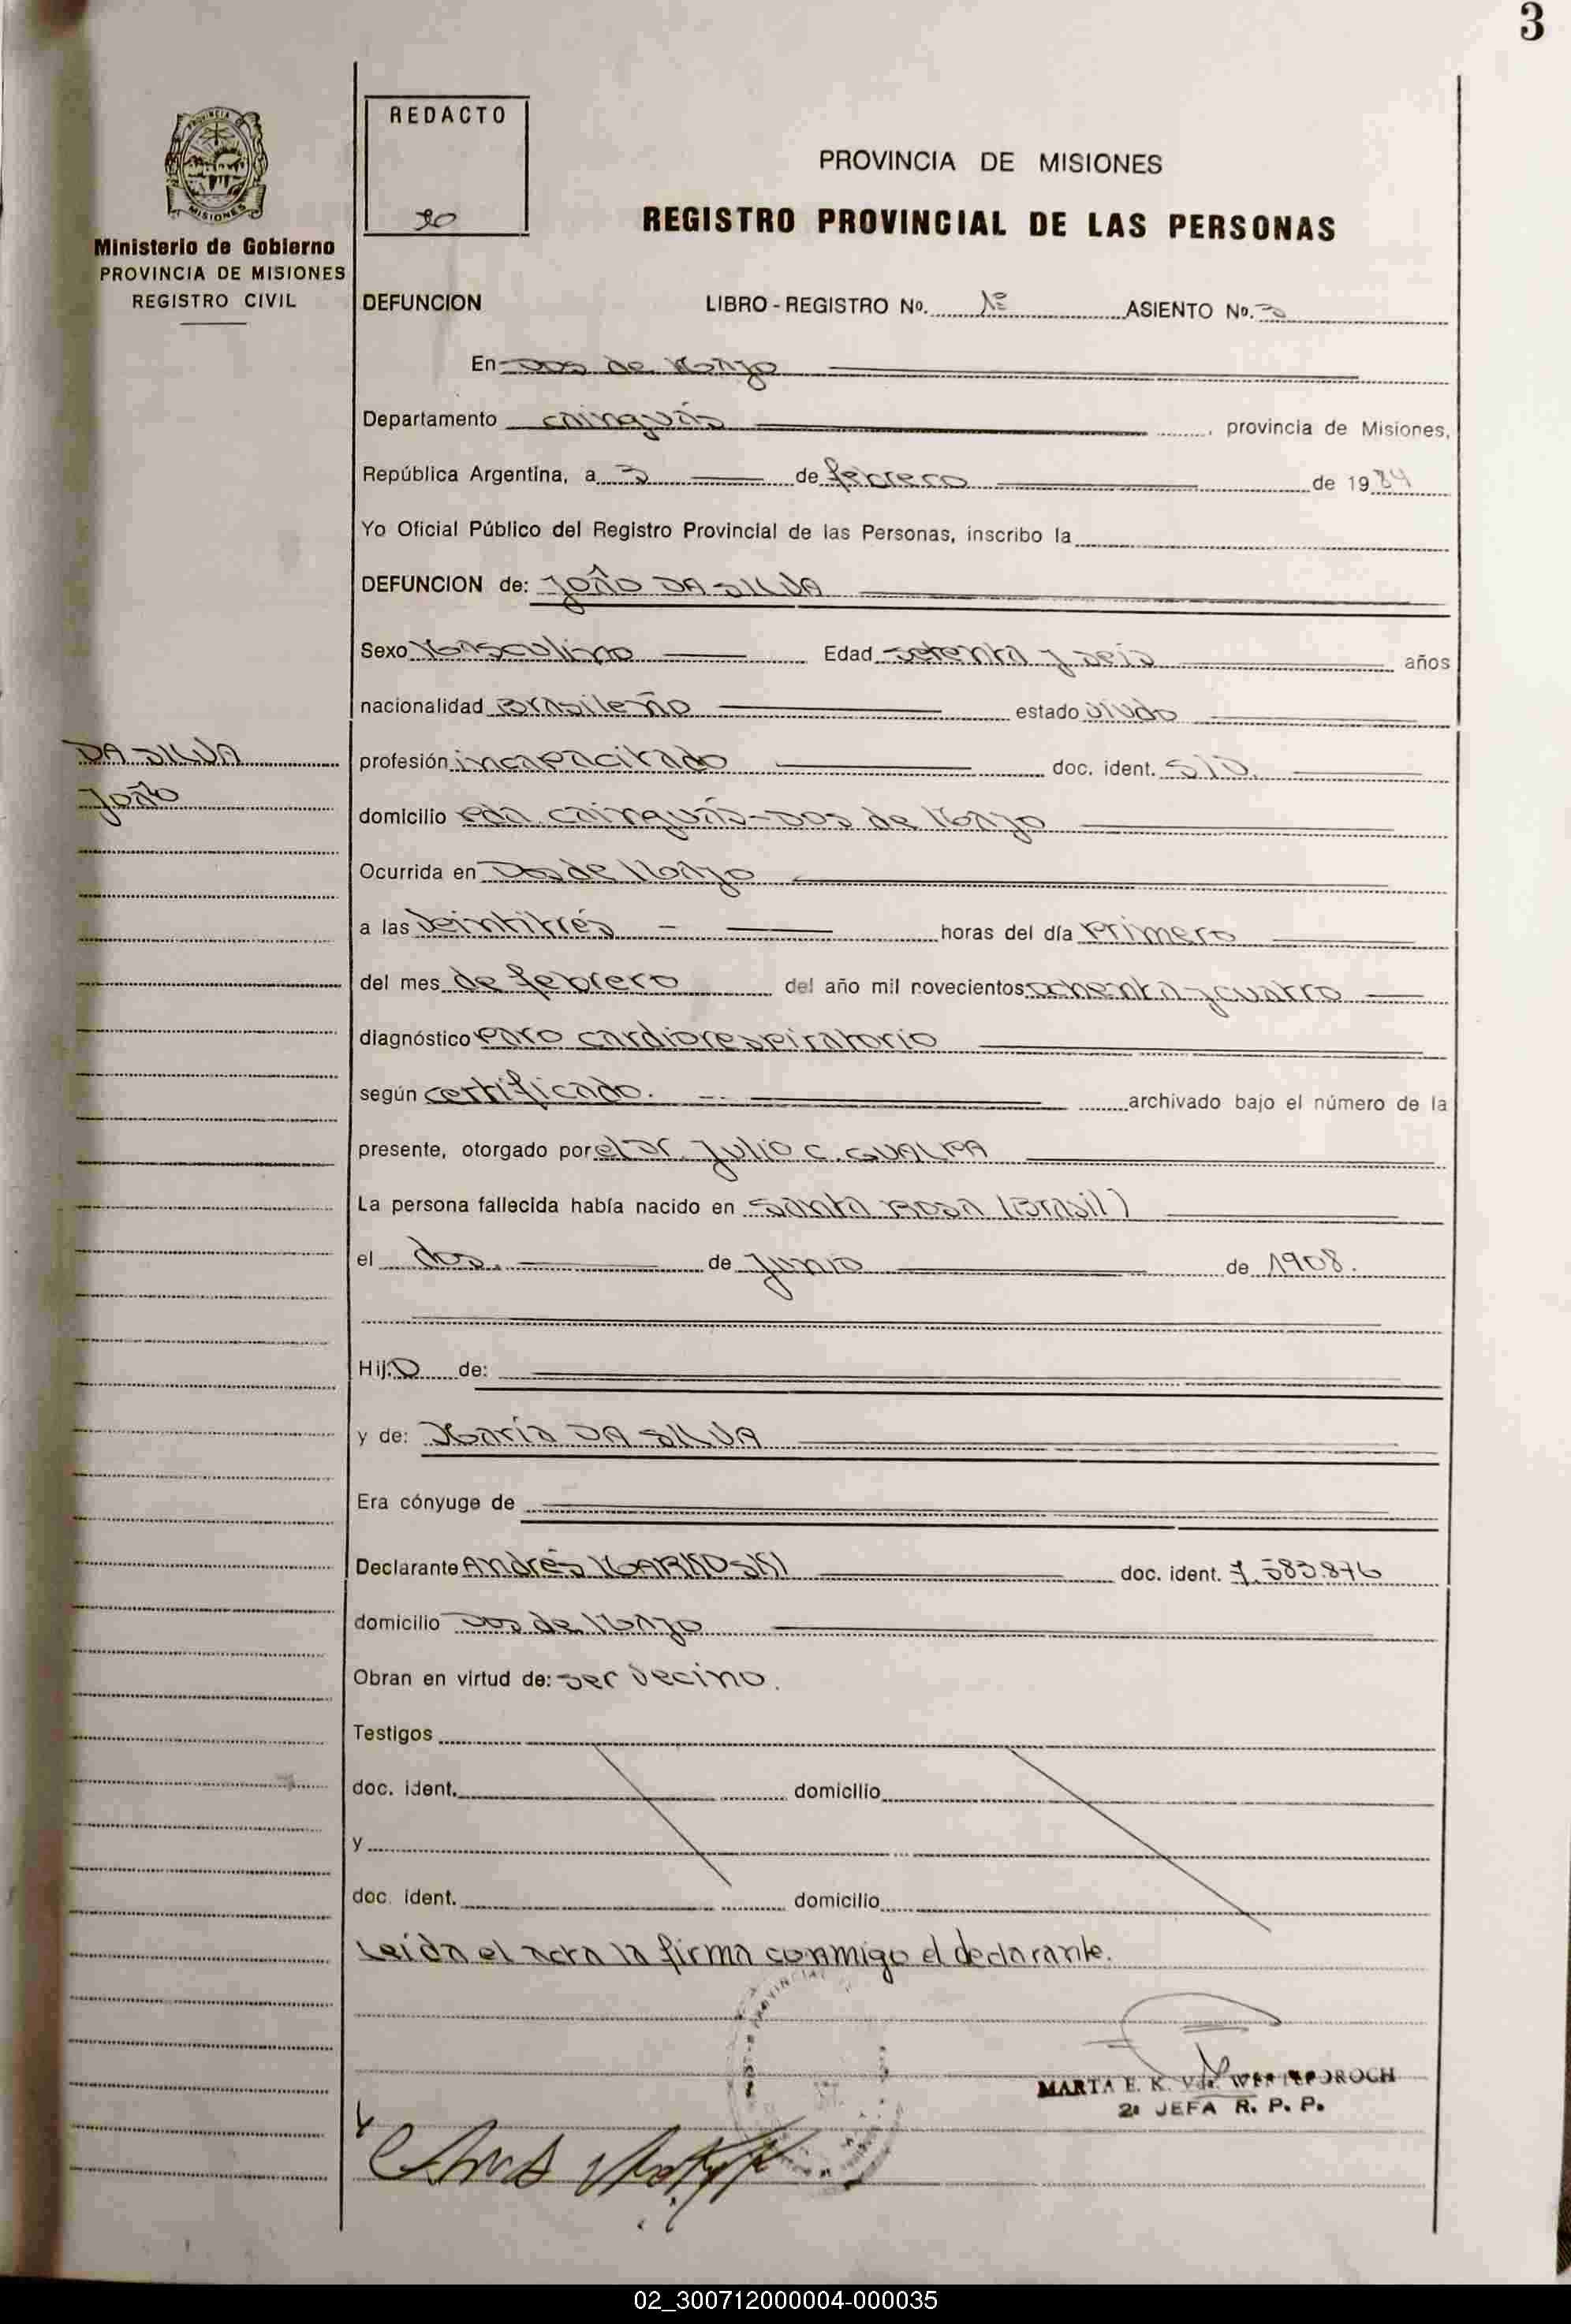 3
REDACTO
PROVINCIA DE MISIONES
REGISTRO PROVINCIAL DE LAS PERSONAS
MISIONES
Ministerio de Gobierno
PROVINCIA DE MISIONES
REGISTRO CIVIL
DEFUNCION LIBRO - REGISTRO No. ASIENTO No. 3
En Dos de Mayo
Departamento Cainguás, provincia de Misiones,
República Argentina, a 3 de febrero de 1984
Yo Oficial Público del Registro Provincial de las Personas, inscribo la
DEFUNCION de: João DA SILVA
Sexo Masculino Edad setenta y seis años
nacionalidad Brasileño estado viudo
DA SILVA
João
profesión incapacitado doc. ident. S/D.
domicilio Pda. Cainguás - Dos de Mayo
Ocurrida en Dos de Mayo
a las veintitrés horas del día primero
del mes de febrero del año mil novecientos ochenta y cuatro
diagnóstico Paro cardiorespiratorio
según certificado. archivado bajo el número de la
presente, otorgado por el Dr. Julio C. GUALPA
La persona fallecida había nacido en Santa Rosa (Brasil)
el dos. de junio de 1908.
Hijo de:
y de: María DA SILVA
Era cónyuge de
Declarante Andrés MARKOSKI doc. ident. 7.583.876
domicilio Dos de Mayo
Obran en virtud de: ser vecino.
Testigos
doc. ident. domicilio
y
doc. ident. domicilio
Leída el acta la firma conmigo el declarante.
MARTA E. K. Vda.
2ª JEFA R. P. P.
02_300712000004-000035